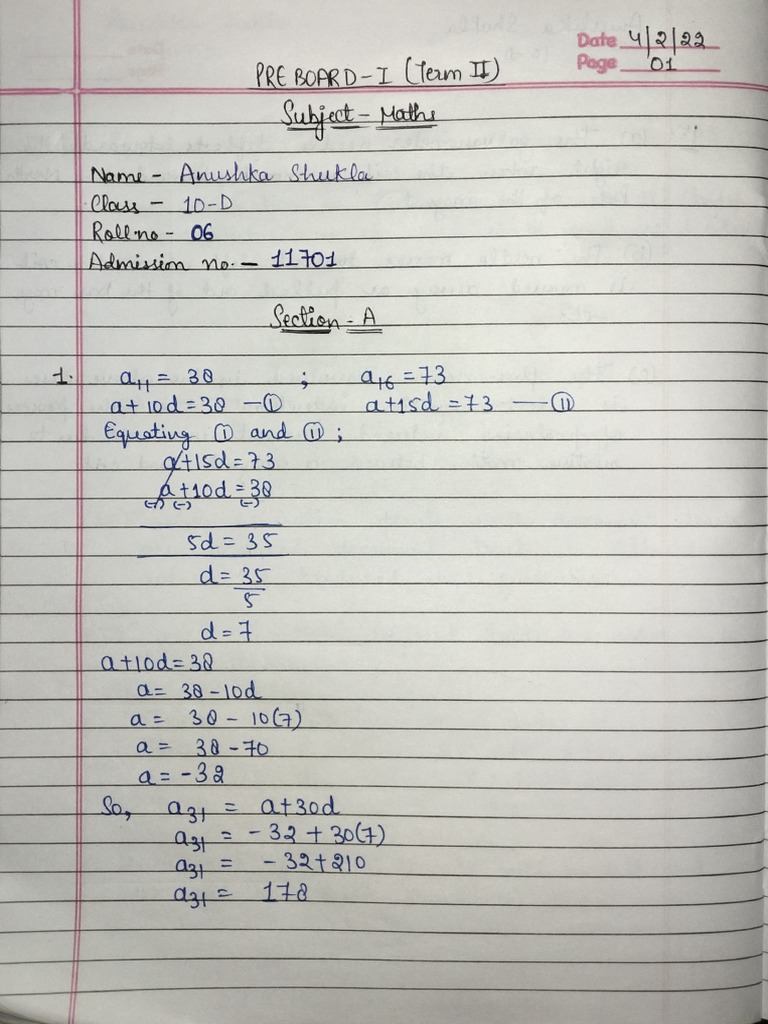 Date 4/2/22
Page 01
PRE BOARD-I (Term II)
Subject - Maths
Name - Anushka Shukla
Class - 10-D
Roll no - 06
Admission no. - 11701
Section - A
1. a₁₁ = 38 ; a₁₆ = 73
a + 10d = 38 - ① a + 15d = 73 - ⑪
Equating ① and ⑪ ;
a + 15d = 73
a + 10d = 38
(-) (-) (-)
5d = 35
d = 35
5
d = 7
a + 10d = 38
a = 38 - 10d
a = 38 - 10(7)
a = 38 - 70
a = -32
So, a₃₁ = a + 30d
a₃₁ = -32 + 30(7)
a₃₁ = -32 + 210
a₃₁ = 178